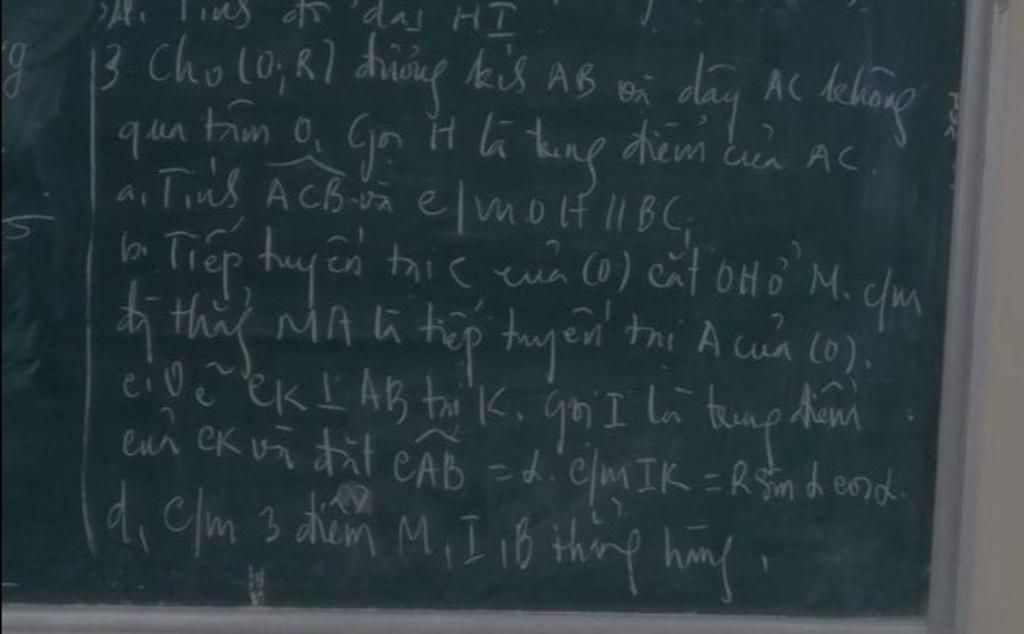 Tính độ dài HI
3. Cho (O; R) đường kính AB và dây AC không
qua tâm O. Gọi H là trung điểm của AC.
a, Tính ACB và c/m OH // BC,
b. Tiếp tuyến tại C của (O) cắt OH ở M. c/m
đg thẳng MA là tiếp tuyến tại A của (O).
c. Vẽ CK ⊥ AB tại K. Gọi I là trung điểm
của CK và đặt CAB = α. C/m IK = R sin α cos α.
d, C/m 3 điểm M, I, B thẳng hàng,